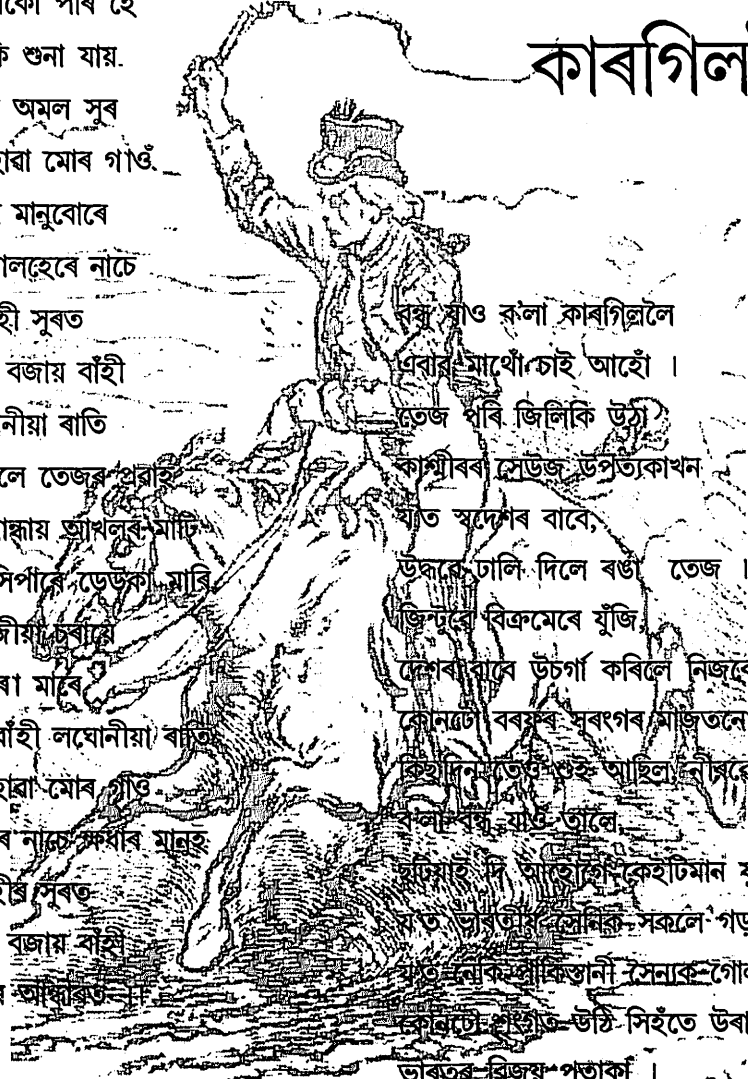 কো পাৰ হে
শুনা যায়.
অমল সুৰ
মোৰ গাওঁ
মানুবোৰে
নাচে
সুৰত
বজায় বাঁহী
ৰাতি
লে তেজৰ প্ৰৱাহ
আখলৰ মাটি
সিপাৰে ডেউকা মাৰি
চৰায়ে
ৰা মাৰে
বাঁহী লঘোনীয়া ৰাতি
মোৰ গাঁও
ৰ নাচে ক্ষুধাৰ মানুহ
সুৰত
বজায় বাঁহী
আন্ধাৰত ।।
কাৰগিল
বন্ধু যাও ব'লা কাৰগিললৈ
এবাৰ মাথোঁ চাই আহোঁ ।
তেজ পৰি জিলিকি উঠা
কাশ্মীৰৰ সেউজ উপত্যকাখন
য'ত স্বদেশৰ বাবে,
উদ্ধৱে ঢালি দিলে ৰঙা তেজ ।
জিন্টুৱে বিক্ৰমেৰে যুঁজি,
দেশৰ বাবে উচৰ্গা কৰিলে নিজৰে
কোনটো বৰফৰ সুৰংগৰ মাজতনো
কিছুদিন তেওঁ শুই আছিল নীৰৱে
ব'লা বন্ধু যাও তালৈ,
ছটিয়াই দি আহোগৈ কেইটিমান
য'ত ভাৰতীয় সৈনিক সকলে গড়
য'ত নেকি পাকিস্তানী সৈন্যক গোল
কোনটো শৃংগত উঠি সিহঁতে উৰা
ভাৰতৰ বিজয় পতাকা ।